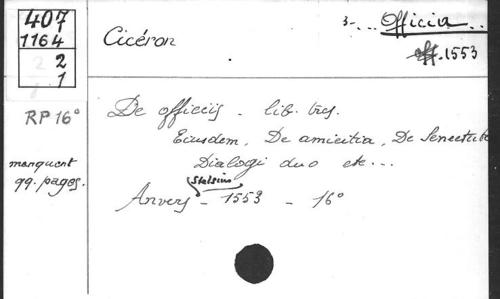 407
1164
2
2
1
RP 16°
manquent
qq. pages.
Cicéron
3-... Officia...
off. 1553
De officiis. lib. tres.
Eiusdem, De amicitia, De Senectute
Dialogi duo etc...
Stelsius
Anvers - 1553 - 16°